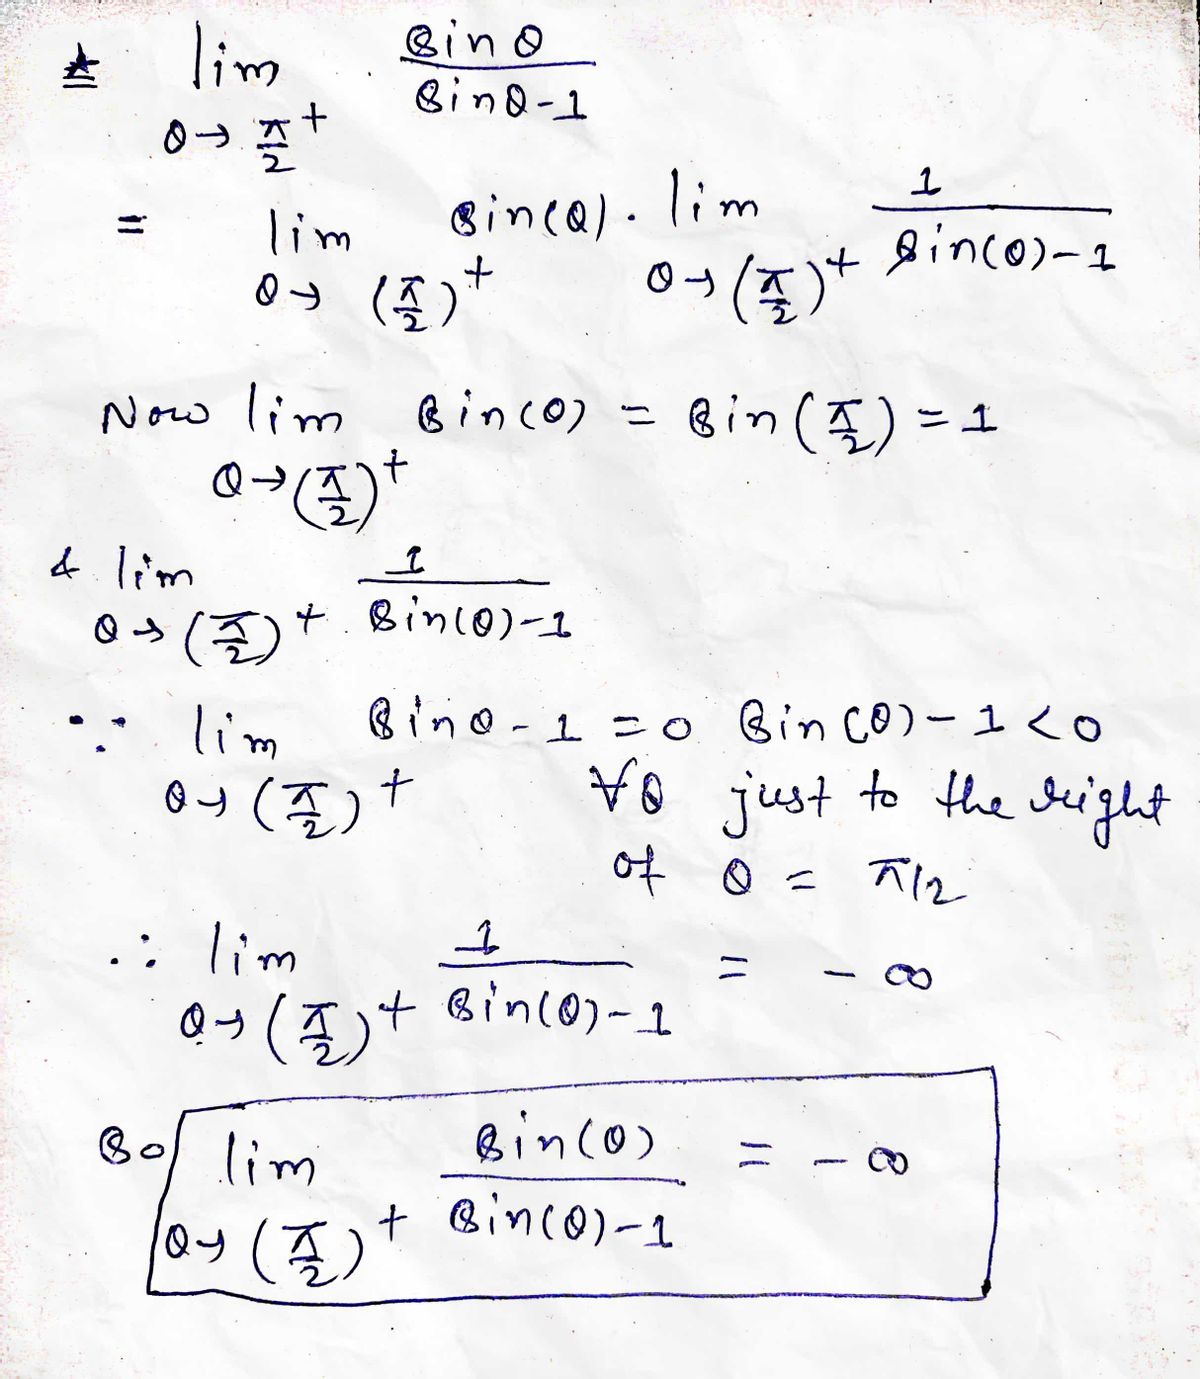 ★ lim θ→π/2⁺ sinθ/(sinθ-1)
= lim θ→(π/2)⁺ sin(θ) . lim θ→(π/2)⁺ 1/(sin(θ)-1)
Now lim θ→(π/2)⁺ sin(θ) = sin(π/2) = 1
& lim θ→(π/2)⁺ 1/(sin(θ)-1)
∵ lim θ→(π/2)⁺ sinθ-1 = 0 sin(θ)-1 < 0
∀θ just to the right
of θ = π/2
∴ lim θ→(π/2)⁺ 1/(sin(θ)-1) = -∞
So lim θ→(π/2)⁺ sin(θ)/(sin(θ)-1) = -∞